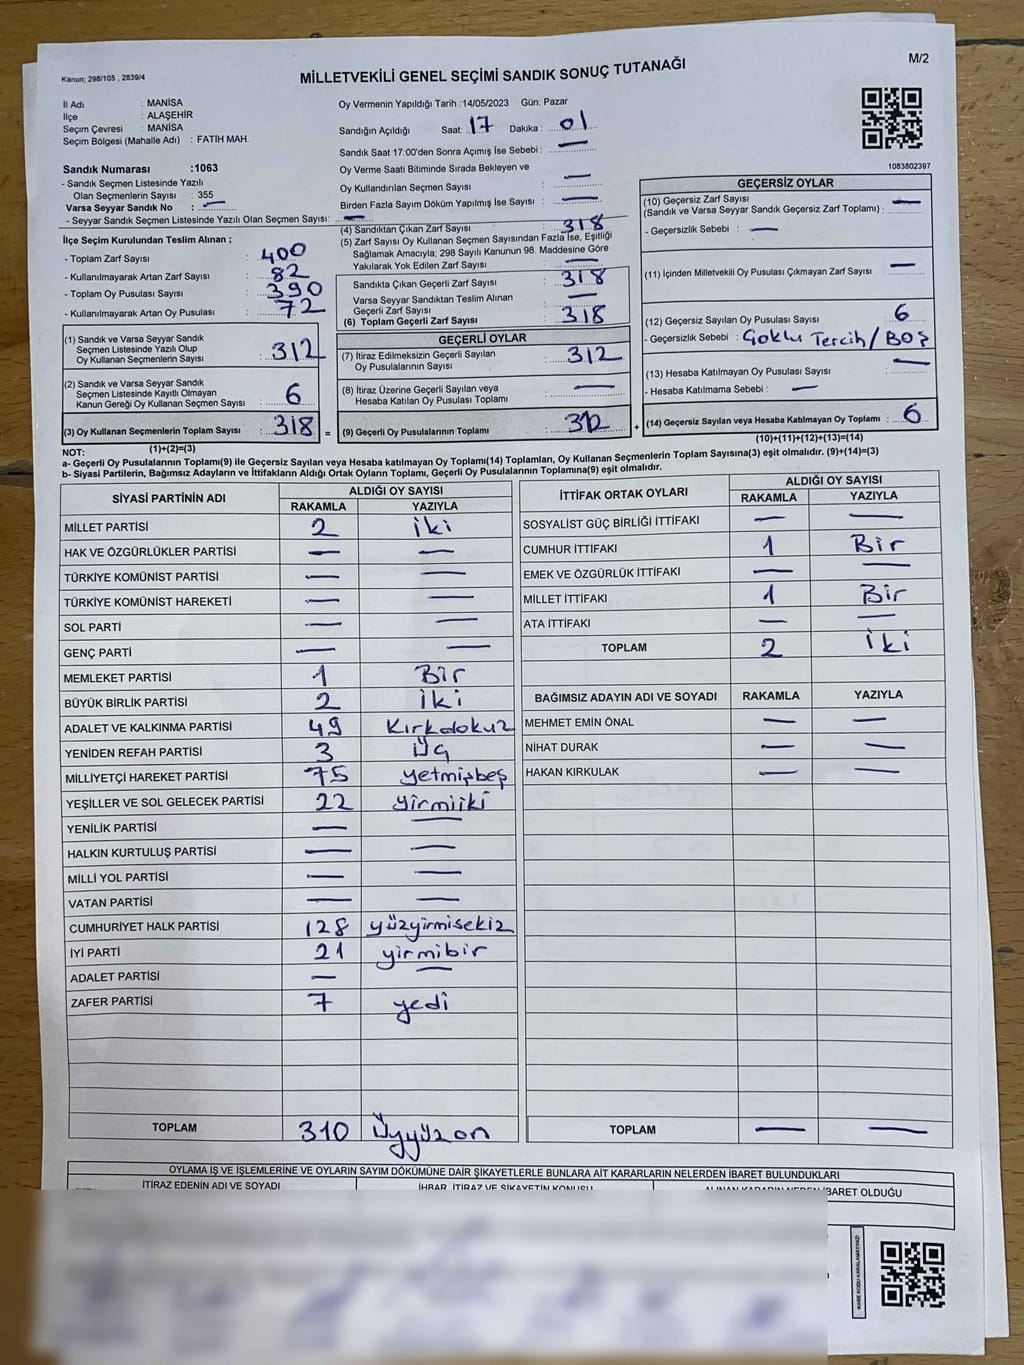 Kanun; 298/105 , 2839/4
MİLLETVEKİLİ GENEL SEÇİMİ SANDIK SONUÇ TUTANAĞI
M/2
İl Adı : MANİSA
İlçe : ALAŞEHİR
Seçim Çevresi : MANİSA
Seçim Bölgesi (Mahalle Adı) : FATİH MAH.
Sandık Numarası :1063
- Sandık Seçmen Listesinde Yazılı
Olan Seçmenlerin Sayısı : 355
Varsa Seyyar Sandık No : —
- Seyyar Sandık Seçmen Listesinde Yazılı Olan Seçmen Sayısı: —
İlçe Seçim Kurulundan Teslim Alınan ;
- Toplam Zarf Sayısı : 400
- Kullanılmayarak Artan Zarf Sayısı : 82
- Toplam Oy Pusulası Sayısı : 390
- Kullanılmayarak Artan Oy Pusulası : 72
(1) Sandık ve Varsa Seyyar Sandık
Seçmen Listesinde Yazılı Olup
Oy Kullanan Seçmenlerin Sayısı : 312
(2) Sandık ve Varsa Seyyar Sandık
Seçmen Listesinde Kayıtlı Olmayan
Kanun Gereği Oy Kullanan Seçmen Sayısı : 6
(3) Oy Kullanan Seçmenlerin Toplam Sayısı : 318 =
(1)+(2)=(3)
Oy Vermenin Yapıldığı Tarih :14/05/2023 Gün: Pazar
Sandığın Açıldığı Saat: 17 Dakika : 01
Sandık Saat 17:00'den Sonra Açımış İse Sebebi : —
Oy Verme Saati Bitiminde Sırada Bekleyen ve
Oy Kullandırılan Seçmen Sayısı : —
Birden Fazla Sayım Döküm Yapılmış İse Sayısı : —
(4) Sandıktan Çıkan Zarf Sayısı : 318
(5) Zarf Sayısı Oy Kullanan Seçmen Sayısından Fazla İse, Eşitliği
Sağlamak Amacıyla; 298 Sayılı Kanunun 98. Maddesine Göre
Yakılarak Yok Edilen Zarf Sayısı : —
Sandıkta Çıkan Geçerli Zarf Sayısı : 318
Varsa Seyyar Sandıktan Teslim Alınan
Geçerli Zarf Sayısı : —
(6) Toplam Geçerli Zarf Sayısı : 318
GEÇERLİ OYLAR
(7) İtiraz Edilmeksizin Geçerli Sayılan
Oy Pusulalarının Sayısı : 312
(8) İtiraz Üzerine Geçerli Sayılan veya
Hesaba Katılan Oy Pusulası Toplamı : —
(9) Geçerli Oy Pusulalarının Toplamı : 312 +
1083802397
GEÇERSİZ OYLAR
(10) Geçersiz Zarf Sayısı
(Sandık ve Varsa Seyyar Sandık Geçersiz Zarf Toplamı) : —
- Geçersizlik Sebebi : —
(11) İçinden Milletvekili Oy Pusulası Çıkmayan Zarf Sayısı : —
(12) Geçersiz Sayılan Oy Pusulası Sayısı : 6
- Geçersizlik Sebebi : Çoklu Tercih/BOŞ
(13) Hesaba Katılmayan Oy Pusulası Sayısı : —
- Hesaba Katılmama Sebebi : —
(14) Geçersiz Sayılan veya Hesaba Katılmayan Oy Toplamı : 6
(10)+(11)+(12)+(13)=(14)
NOT:
a- Geçerli Oy Pusulalarının Toplamı(9) ile Geçersiz Sayılan veya Hesaba katılmayan Oy Toplamı(14) Toplamları, Oy Kullanan Seçmenlerin Toplam Sayısına(3) eşit olmalıdır. (9)+(14)=(3)
b- Siyasi Partilerin, Bağımsız Adayların ve İttifakların Aldığı Ortak Oyların Toplamı, Geçerli Oy Pusulalarının Toplamına(9) eşit olmalıdır.
SİYASİ PARTİNİN ADI ALDIĞI OY SAYISI
RAKAMLA YAZIYLA
MİLLET PARTİSİ 2 iki
HAK VE ÖZGÜRLÜKLER PARTİSİ — —
TÜRKİYE KOMÜNİST PARTİSİ — —
TÜRKİYE KOMÜNİST HAREKETİ — —
SOL PARTİ — —
GENÇ PARTİ — —
MEMLEKET PARTİSİ 1 Bir
BÜYÜK BİRLİK PARTİSİ 2 iki
ADALET VE KALKINMA PARTİSİ 49 Kırkdokuz
YENİDEN REFAH PARTİSİ 3 Üç
MİLLİYETÇİ HAREKET PARTİSİ 75 yetmişbeş
YEŞİLLER VE SOL GELECEK PARTİSİ 22 yirmiiki
YENİLİK PARTİSİ — —
HALKIN KURTULUŞ PARTİSİ — —
MİLLİ YOL PARTİSİ — —
VATAN PARTİSİ — —
CUMHURİYET HALK PARTİSİ 128 yüzyirmisekiz
İYİ PARTİ 21 yirmibir
ADALET PARTİSİ — —
ZAFER PARTİSİ 7 yedi
TOPLAM 310 Üçyüzon
İTTİFAK ORTAK OYLARI ALDIĞI OY SAYISI
RAKAMLA YAZIYLA
SOSYALİST GÜÇ BİRLİĞİ İTTİFAKI — —
CUMHUR İTTİFAKI 1 Bir
EMEK VE ÖZGÜRLÜK İTTİFAKI — —
MİLLET İTTİFAKI 1 Bir
ATA İTTİFAKI — —
TOPLAM 2 iki
BAĞIMSIZ ADAYIN ADI VE SOYADI RAKAMLA YAZIYLA
MEHMET EMİN ÖNAL — —
NİHAT DURAK — —
HAKAN KIRKULAK — —
TOPLAM — —
OYLAMA İŞ VE İŞLEMLERİNE VE OYLARIN SAYIM DÖKÜMÜNE DAİR ŞİKAYETLERLE BUNLARA AİT KARARLARIN NELERDEN İBARET BULUNDUKLARI
İTİRAZ EDENİN ADI VE SOYADI İHBAR, İTİRAZ VE ŞİKAYETİN KONUSU ALINAN KARARIN NEDEN İBARET OLDUĞU
KARE KODU KARALAMAYINIZ!